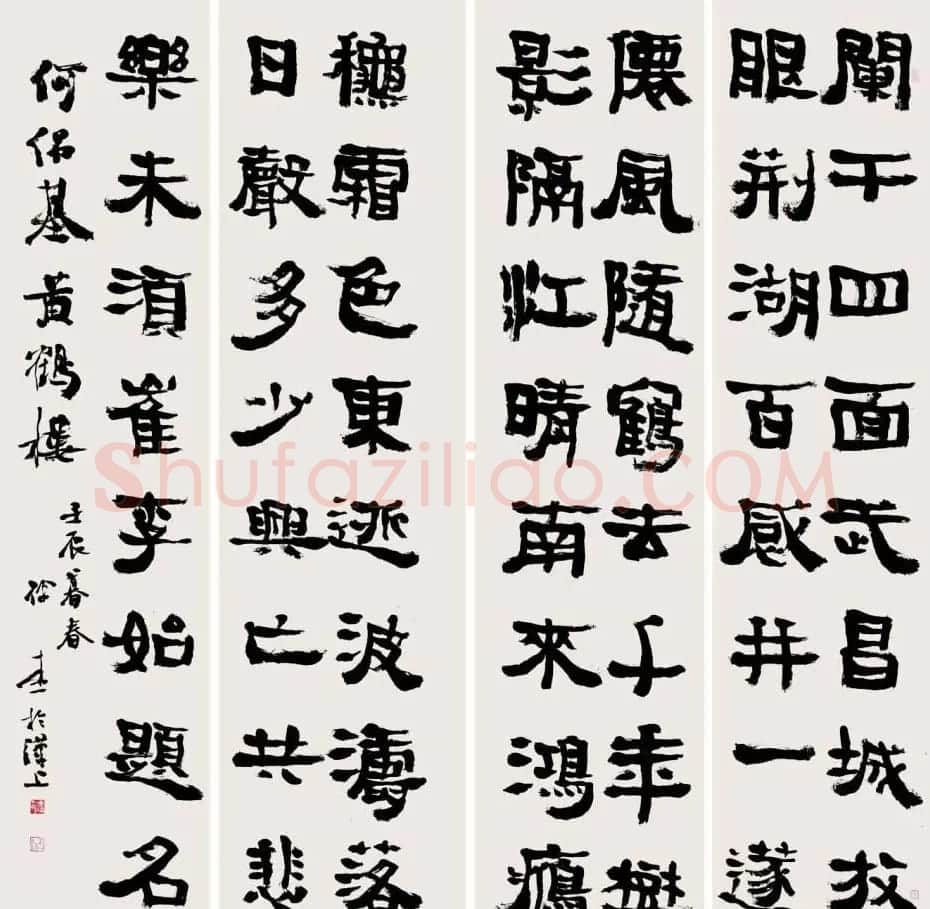 闌干四面武昌城放
眼荆湖百感并一遂
僊風隨鶴去千年樹
影隔江晴南來鴻鴈
穐霜色東逝波濤落
日聲多少興亡共悲
樂未須崔李始題名
何紹基黄鶴樓
壬辰暮春
於漢上
Shufaziliao.COM